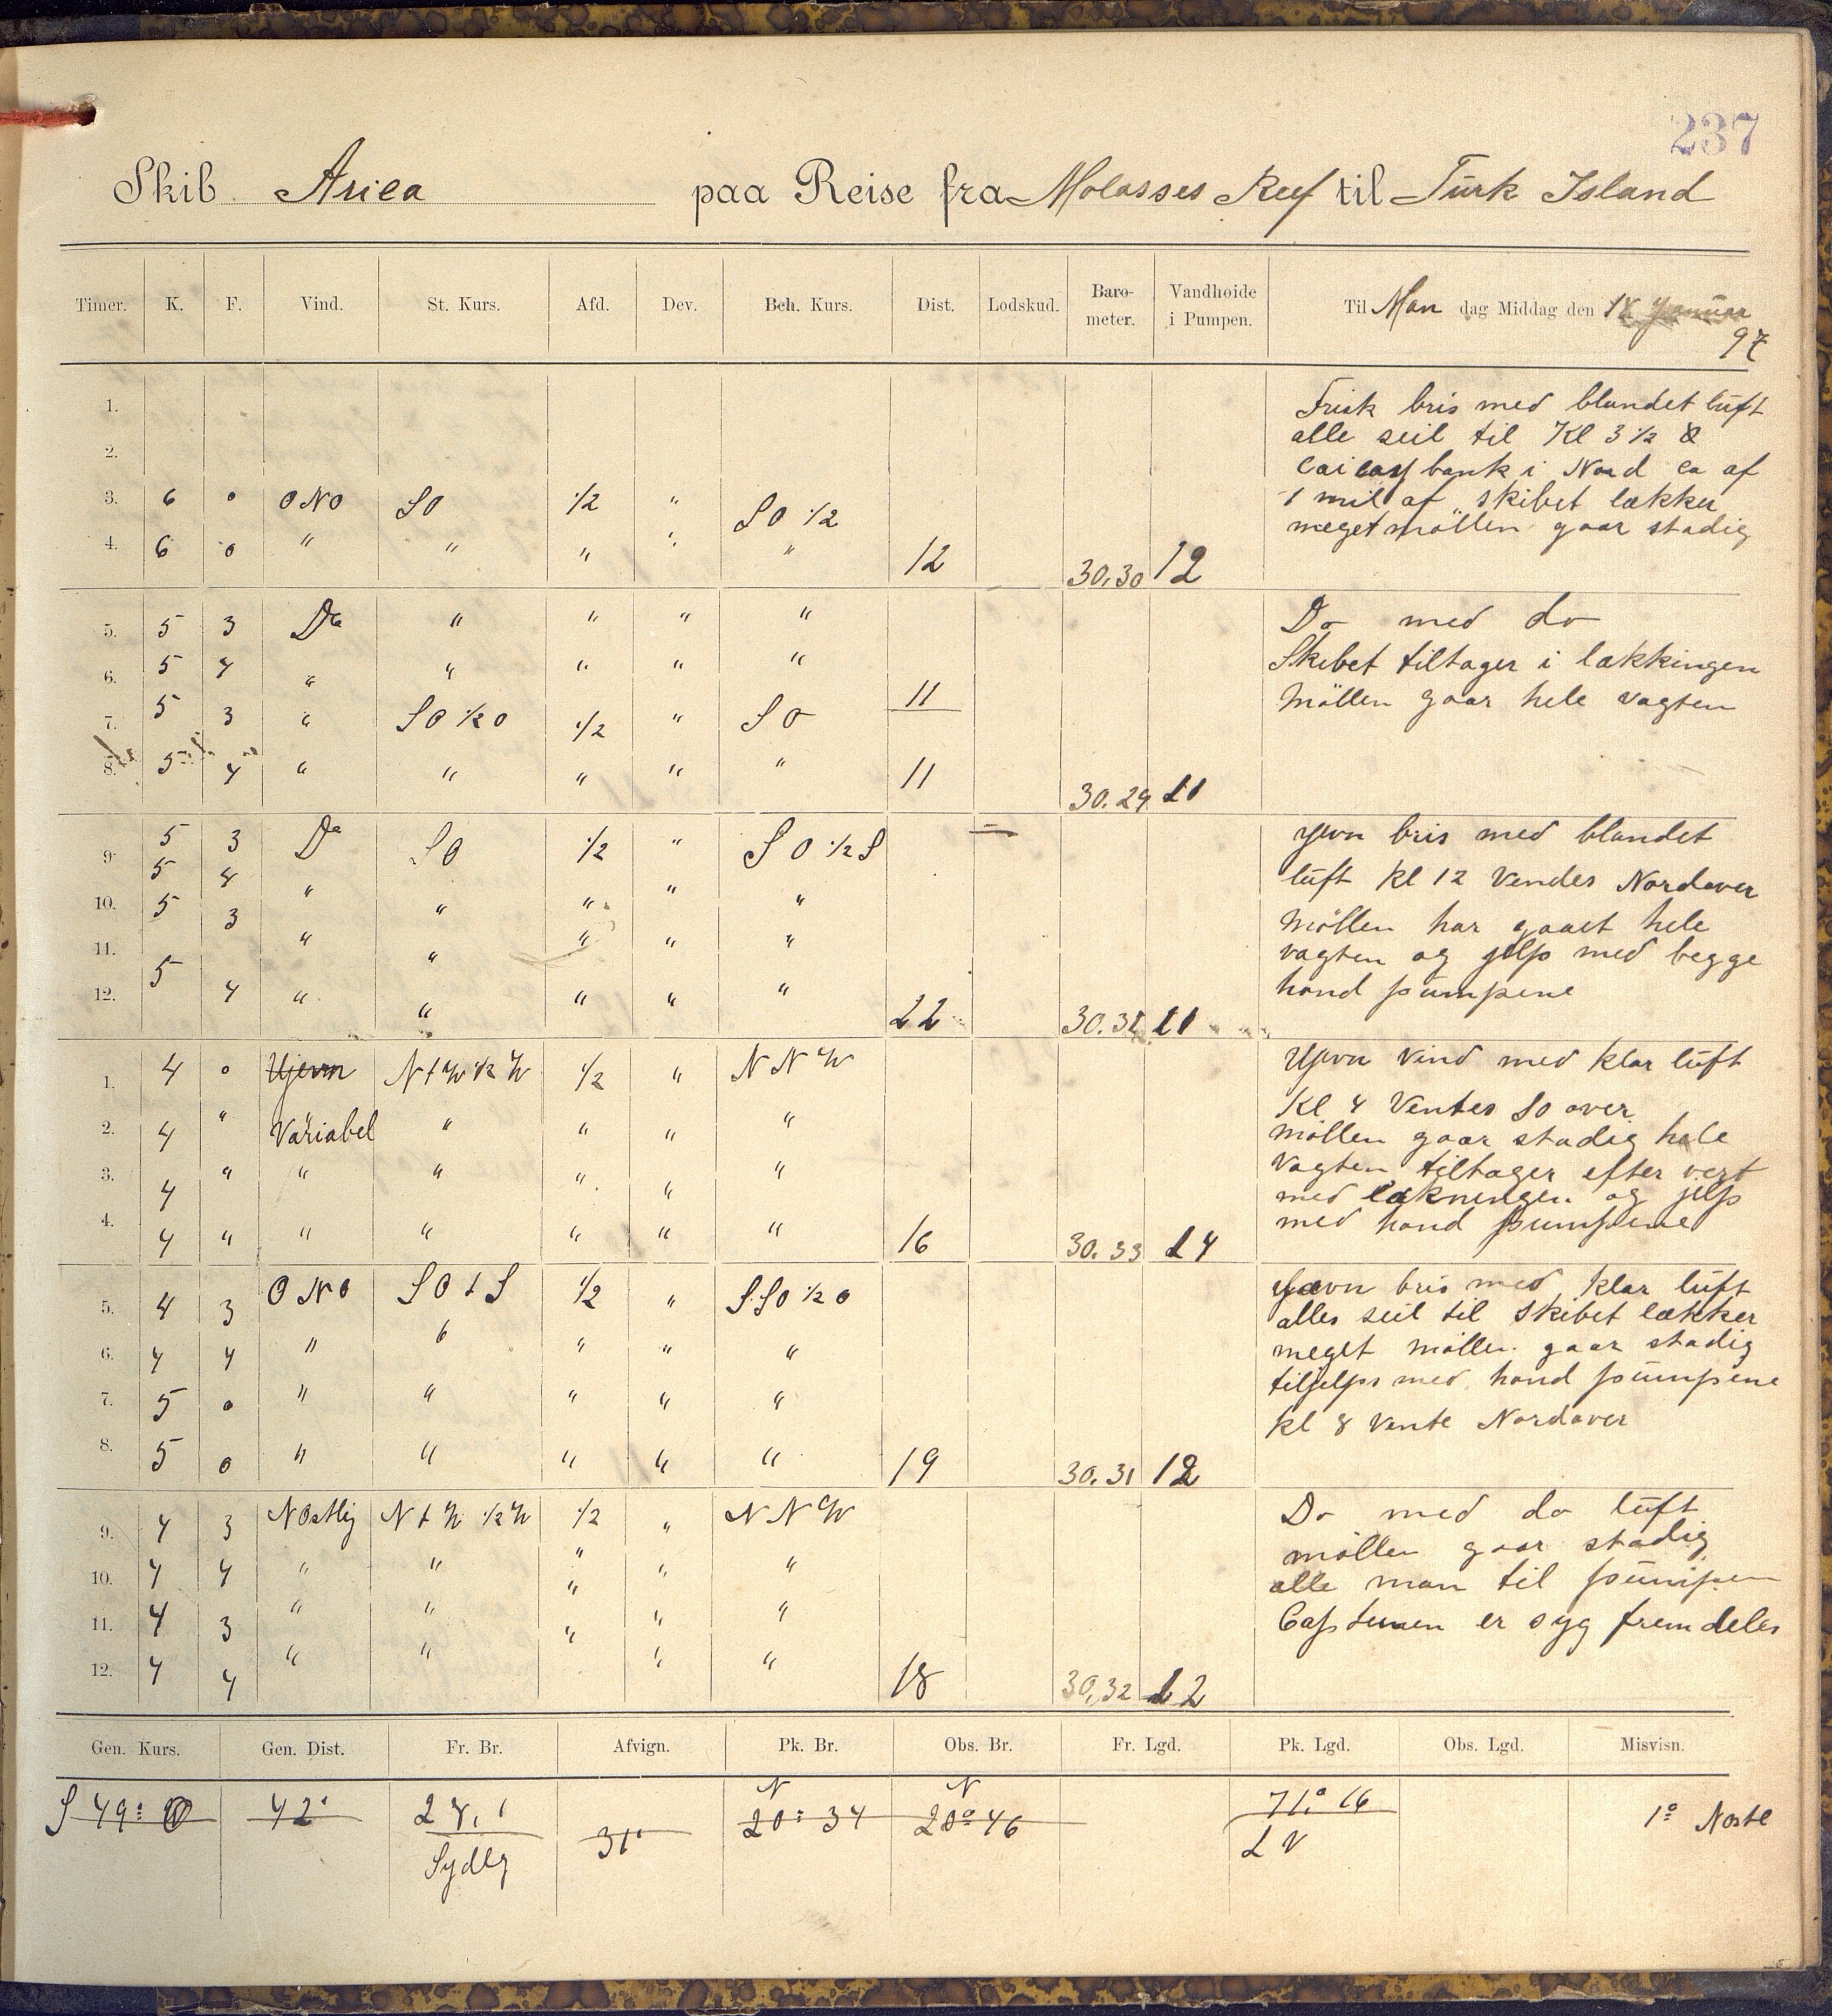 237
Skib Arica paa Reise fra Molasses Reef til Turk Island
Timer. K. F. Vind. St. Kurs. Afd. Dev. Beh. Kurs. Dist. Lodskud. Baro-meter. Vandhoide i Pumpen. Til Man dag Middag den 18 Januar 97
1.
2.
3. 6 0 ONO SO 1/2 " SO 1/2
4. 6 0 " " " " " 12 30.30 12
Frisk bris med blandet luft
alle seil til Kl 3 1/2 &
bank i Nord ca af
1 mil af skibet lækker
meget möllen gaar stadig
5. 5 3 Do " " " "
6. 5 4 " " " " " 11
7. 5 3 " SO 1/2 O 1/2 " SO
8. 5 4 " " " " " 11 30.29 11
Do med do
Skibet tiltager i lækkingen
Möllen gaar hele vagten
9. 5 3 Do SO 1/2 " SO 1/2 S
10. 5 4 " " " " "
11. 5 3 " " " " "
12. 5 4 " " " " " 22 30.31 11
Jevn bris med blandet
luft Kl 12 Vendes Nordover
Möllen har gaaet hele
vagten og jelp med begge
hand pumpene
1. 4 0 Ujevn N t W 1/2 W 1/2 " NNW
2. 4 " Variabel " " " "
3. 4 " " " " " "
4. 4 " " " " " " 16 30.33 14
Ujevn vind med klar luft
Kl 4 Ventes So over
möllen gaar stadig hele
Vagten tiltager efter vert
med lækningen og jelp
med hand pumpene
5. 4 3 ONO SO t S 1/2 " SSO 1/2 O
6. 4 4 " " " " "
7. 5 0 " " " " "
8. 5 0 " " " " " 19 30.31 12
Jævn bris med klar luft
alles seil til skibet lækker
meget möllen gaar stadig
tiljelps med hand pumpene
Kl 8 vente Nordover
9. 4 3 NOstlig N t W 1/2 W 1/2 " NNW
10. 4 4 " " " " "
11. 4 3 " " " " "
12. 4 4 " " " " " 18 30,32 12
Do med do luft
möllen gaar stadig
alle man til pumpen
er syg fremdeles
Gen. Kurs. Gen. Dist. Fr. Br. Afvign. Pk. Br. Obs. Br. Fr. Lgd. Pk. Lgd. Obs. Lgd. Misvisn.
N N
S 49° O 42' 28,1 31' 20° 34 20° 46 71° 16 1° Norte
Sydlg L V